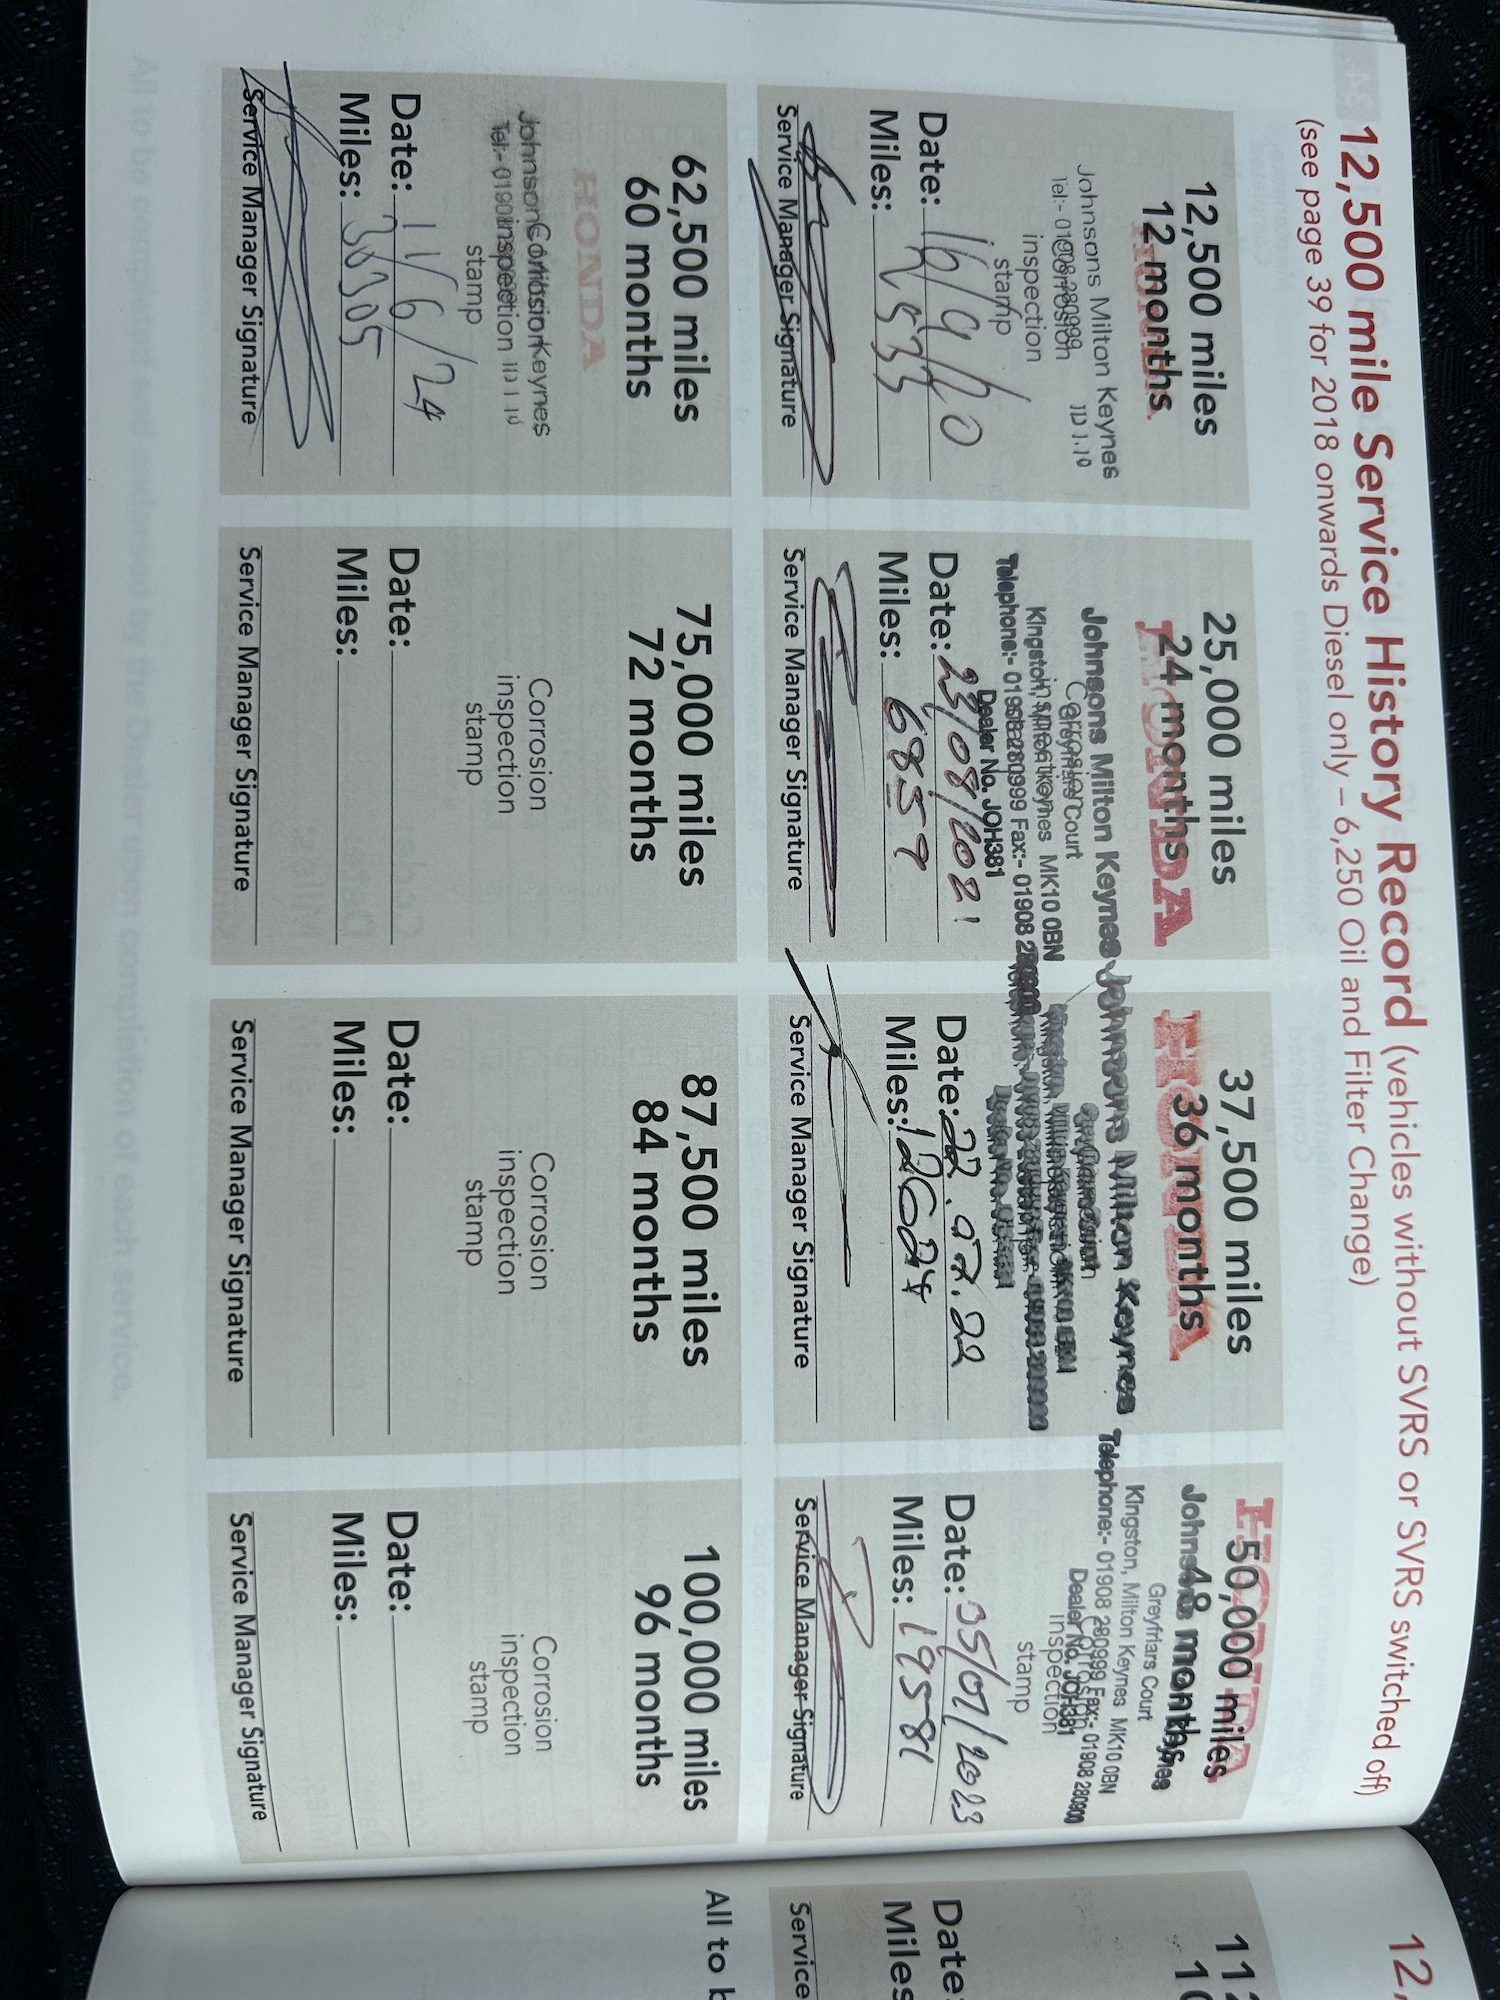 12,500 mile Service History Record (vehicles without SVRS or SVRS switched off)
(see page 39 for 2018 onwards Diesel only – 6,250 Oil and Filter Change)
12,500 miles
12 months
Johnsons Milton Keynes
Tel:- 01908 280999 JD 1.10
Corrosion
inspection
stamp
Date: 16/9/20
Miles:
Service Manager Signature
25,000 miles
24 months
HONDA
Johnsons Milton Keynes
Greyfriars Court
Corrosion
Kingston, Milton Keynes MK10 0BN
inspection
Telephone:- 01908 280999 Fax:- 01908
stamp
Dealer No. JOH381
Date: 23/08/2021
Miles: 6859
Service Manager Signature
37,500 miles
36 months
HONDA
Johnsons Milton Keynes
Date: 22.07.22
Miles: 12624
Service Manager Signature
50,000 miles
48 months
HONDA
Johnsons Milton Keynes
Greyfriars Court
Kingston, Milton Keynes MK10 0BN
Telephone:- 01908 280999 Fax:- 01908 280800
Corrosion
Dealer No. JOH381
inspection
stamp
Date: /07/2023
Miles: 19581
Service Manager Signature
62,500 miles
60 months
HONDA
Johnsons Milton Keynes
Corrosion
Tel:- 01908 JD 1.10
inspection
stamp
Date: 11/6/24
Miles:
Service Manager Signature
75,000 miles
72 months
Corrosion
inspection
stamp
Date:
Miles:
Service Manager Signature
87,500 miles
84 months
Corrosion
inspection
stamp
Date:
Miles:
Service Manager Signature
100,000 miles
96 months
Corrosion
inspection
stamp
Date:
Miles:
Service Manager Signature
All to be completed and endorsed by the Dealer upon completion of each service.
12,
Date:
Miles
Service
All to